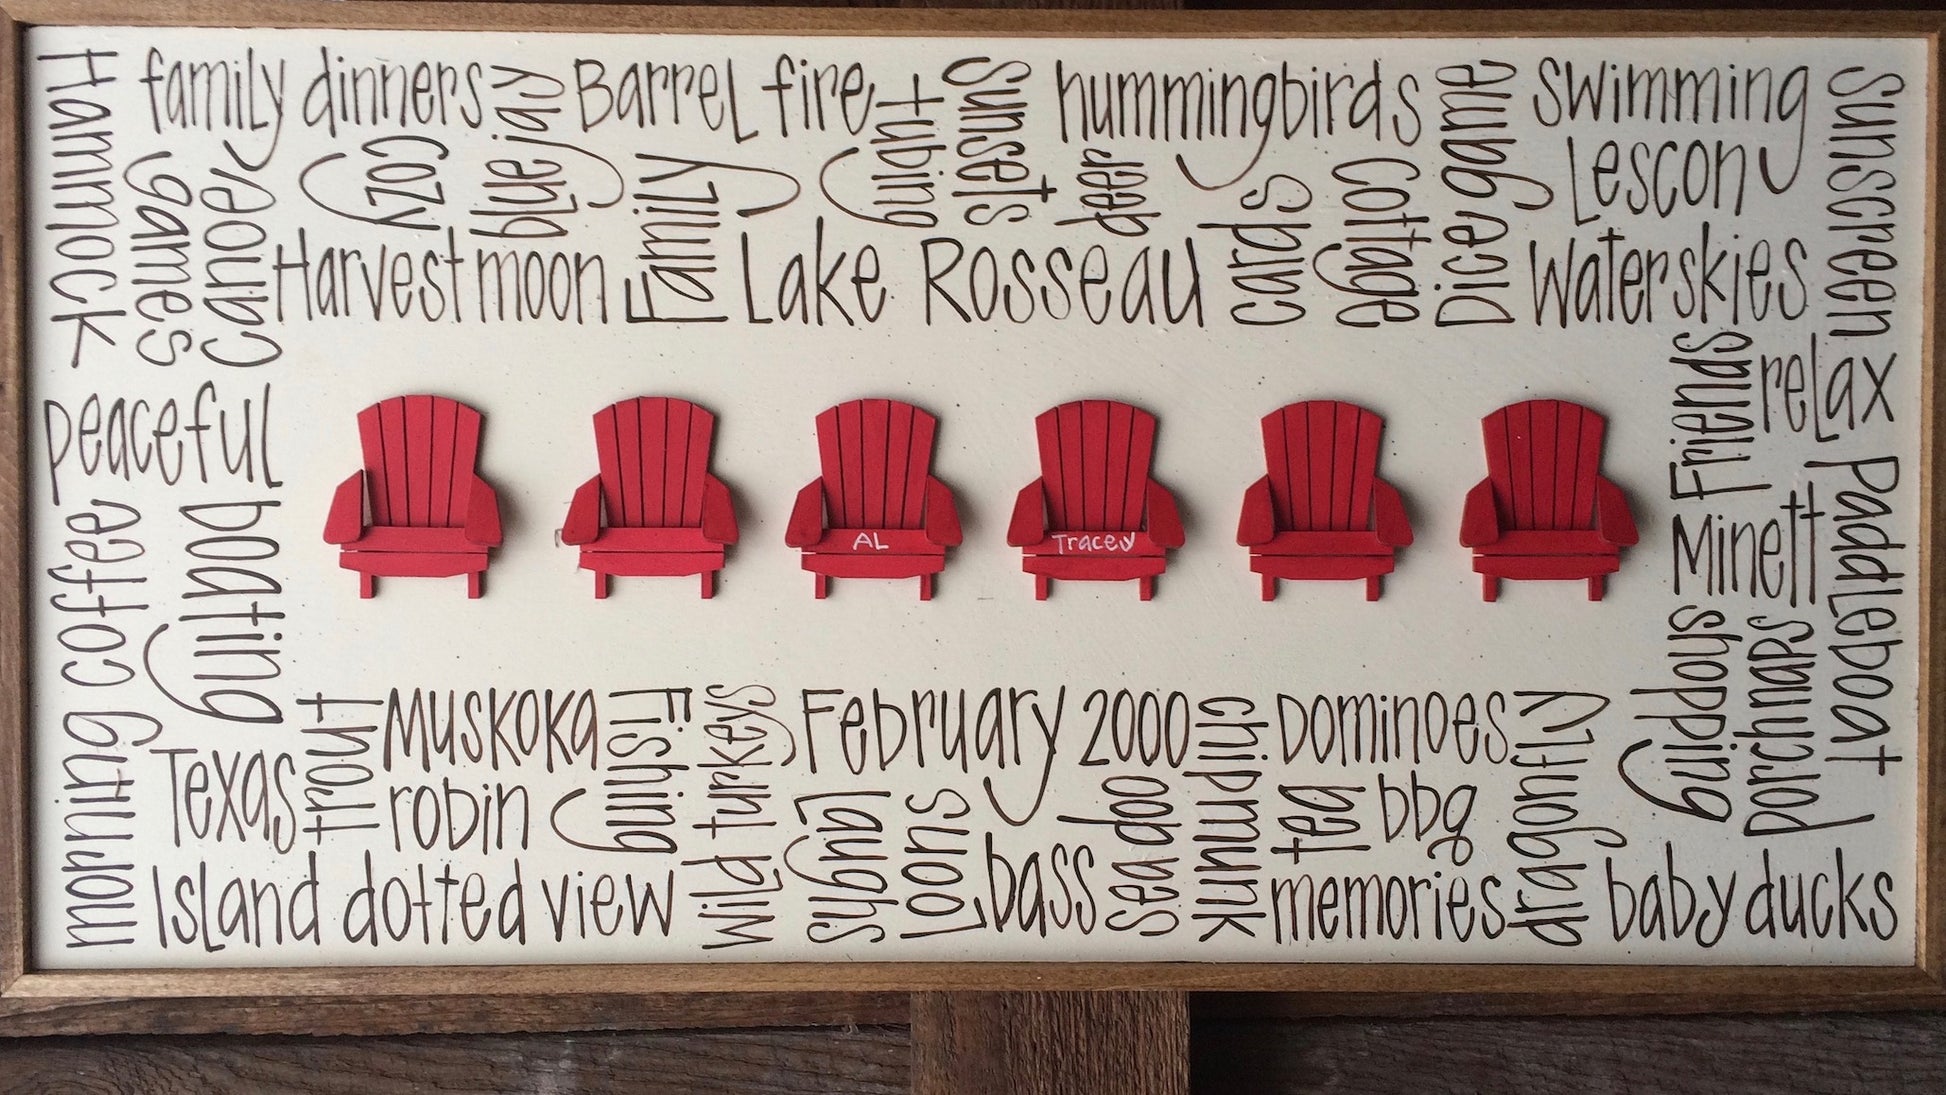 Hammock
family dinners
blue jay
Barrel fire
hunting
sunsets
hummingbirds
Dice game
swimming
sunscreen
games
canoe
cozy
Family
deer
cards
cottage
Lescon
Harvest moon
Lake Rosseau
Waterskies
peaceful
Friends
relax
AL
Tracey
morning coffee
boating
Minett
Paddleboat
shopping
porch naps
Texas
trout
Muskoka
Fishing
wild turkeys
February 2000
chipmunk
Dominoes
dragonfly
robin
laughs
Loons
sea doo
tea
bbq
Island dotted view
bass
memories
baby ducks